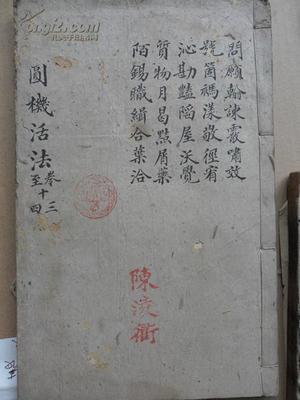 問願翰諫霰嘯效
號箇禡漾敬徑宥
沁勘豔陷屋沃覺
質物月曷黠屑藥
陌錫職緝合葉洽
圓機活法
卷三
至十四
陳